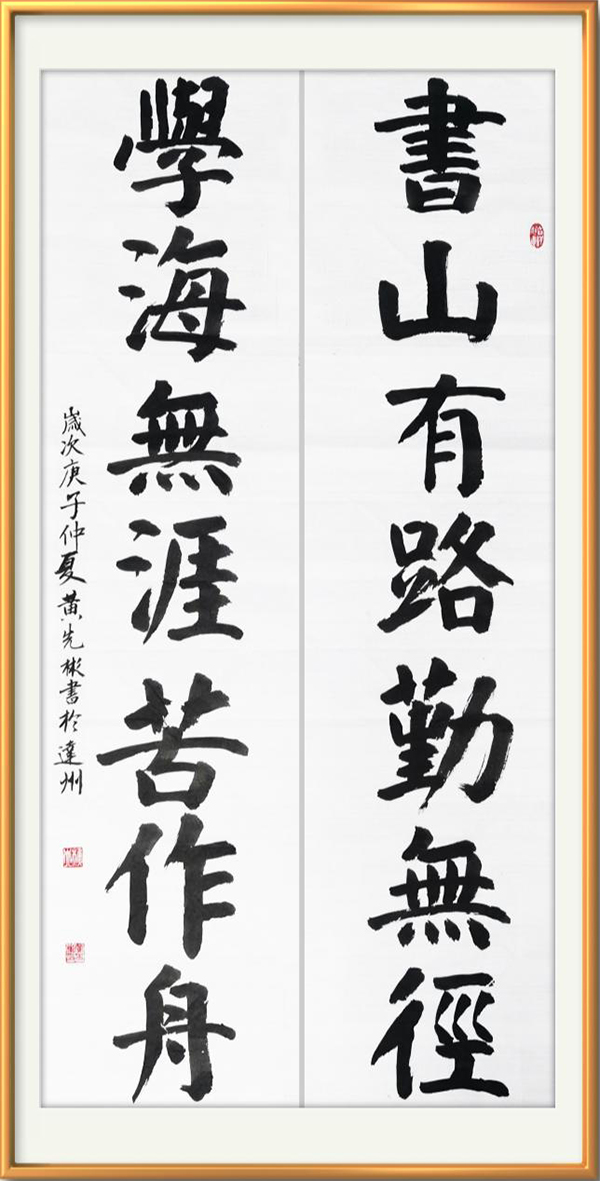 書山有路勤無徑
學海無涯苦作舟
歲次庚子仲夏黃先彬書於達州